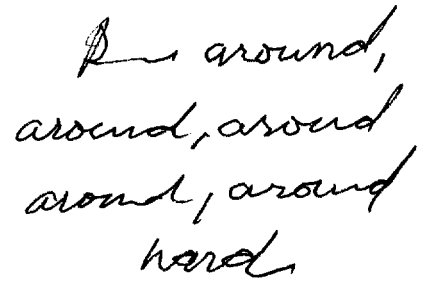 around,
around, around
around, around
hard